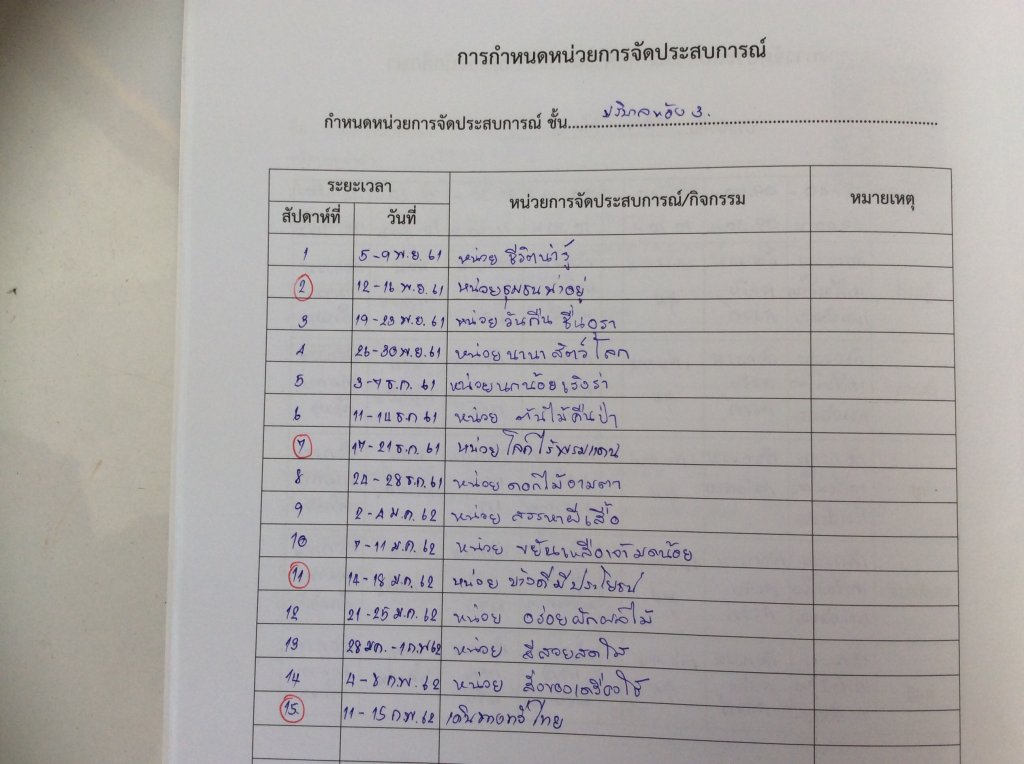 การกำหนดหน่วยการจัดประสบการณ์
กำหนดหน่วยการจัดประสบการณ์ ชั้น ปริบาลห้อง 3.
ระยะเวลา หน่วยการจัดประสบการณ์/กิจกรรม หมายเหตุ
สัปดาห์ที่ วันที่
1 5-9 พ.ย. 61 หน่วย ชีวิตน่ารู้
2 12-16 พ.ย. 61 หน่วยชุมชนน่าอยู่
3 19-23 พ.ย. 61 หน่วย วันคืน ชื่นอุรา
4 26-30 พ.ย. 61 หน่วย นานา สัตว์ โลก
5 3-7 ธ.ค. 61 หน่วยนกน้อยเริงร่า
6 11-14 ธ.ค 61 หน่วย ต้นไม้คืนป่า
7 17-21 ธ.ค. 61 หน่วย โลกไร้พรมแดน
8 24-28 ธ.ค. 61 หน่วย ดอกไม้งามตา
9 2-4 ม.ค. 62 หน่วย สรรหาผีเสื้อ
10 7-11 ม.ค. 62 หน่วย ขยันเหลือเจ้ามดน้อย
11 14-18 ม.ค. 62 หน่วย ข้างดีมีประโยชน์
12 21-25 ม.ค. 62 หน่วย อร่อยผักผลไม้
13 28 ม.ค. -1 ก.พ 62 หน่วย สีสวยสดใส
14 4-8 ก.พ. 62 หน่วย สิ่งของเครื่องใช้
15. 11-15 ก.พ. 62 เดินทางทั่วไทย